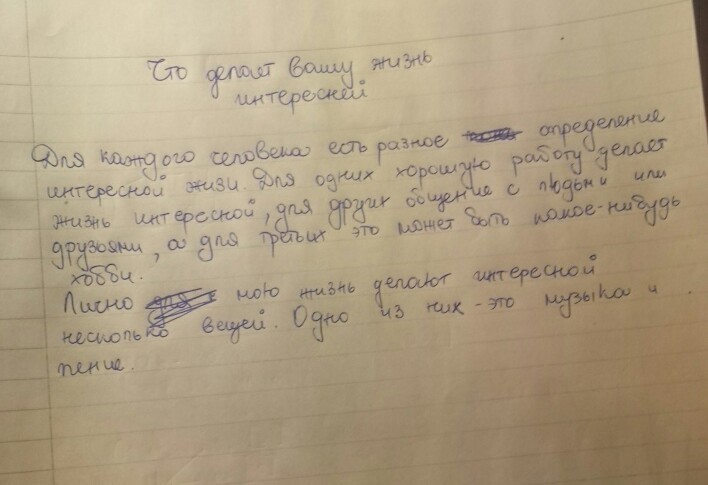 Что делает вашу жизнь
интересней
Для каждого человека есть разное определение
интересной жизи. Для одних хорошую работу делает
жизнь интересной, для других общение с людьми или
друзьями, а для третьих это может быть какое-нибудь
хобби.
Лично мою жизнь делают интересной
несколько вещей. Одно из них - это музыка и
пение.